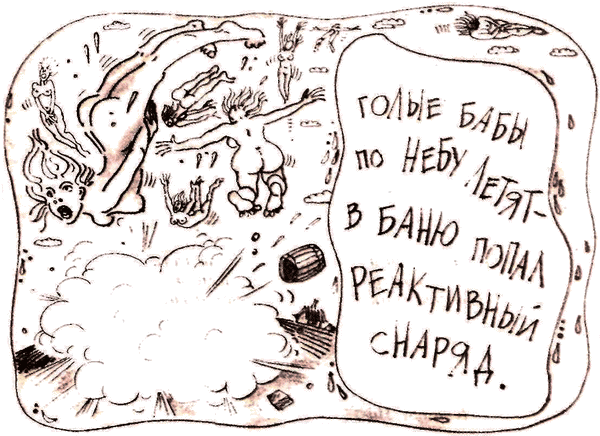 ГОЛЫЕ БАБЫ
ПО НЕБУ ЛЕТЯТ-
В БАНЮ ПОПАЛ
РЕАКТИВНЫЙ
СНАРЯД.